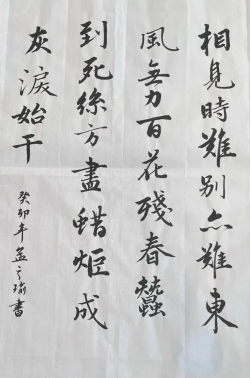 相見時難别亦難東
風無力百花殘春蠶
到死絲方盡蜡炬成
灰淚始干
癸卯年孟之瑜書